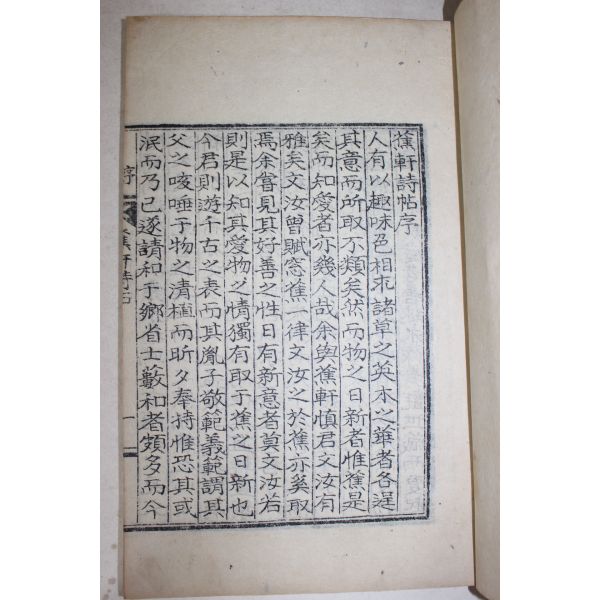 蕉軒詩帖序
人有以趣味色相求諸草之英木之華者各逞
其意而所取不類矣然而物之日新者惟蕉是
矣而知愛者亦幾人哉余與蕉軒愼君文汝有
雅矣文汝曾賦窓蕉一律文汝之於蕉亦奚取
焉余嘗見其好善之性日有新意者莫文汝若
則是以知其愛物之情獨有取于蕉之日新也
今君則遊千古之表而其胤子敬範義範謂其
父之咳唾于物之清植而昕夕奉持惟恐其或
泯而乃已遂請和于鄉省士藪和者頗多而今
序
蕉軒詩帖
一